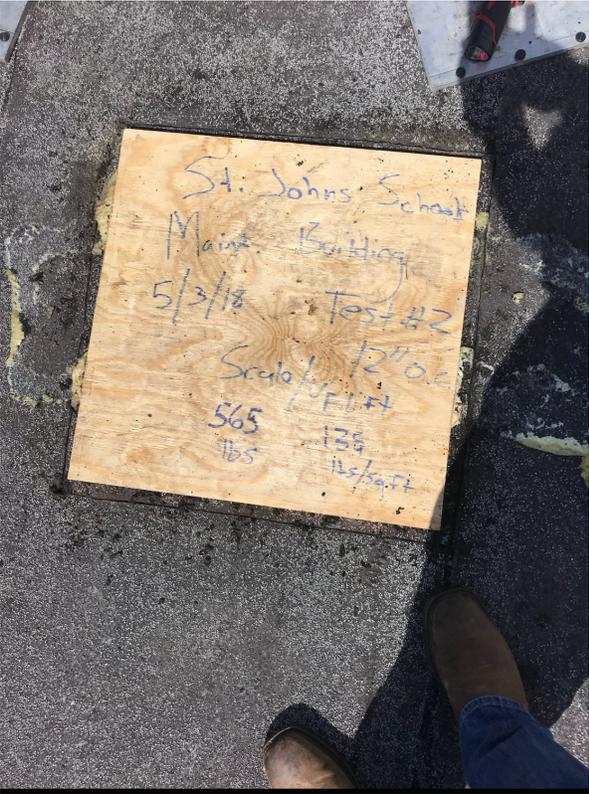 St. Johns School
Maint. Building
5/3/18 Test #2
12" o.c
Scale/Uplift
565 138
lbs lbs/sq.ft